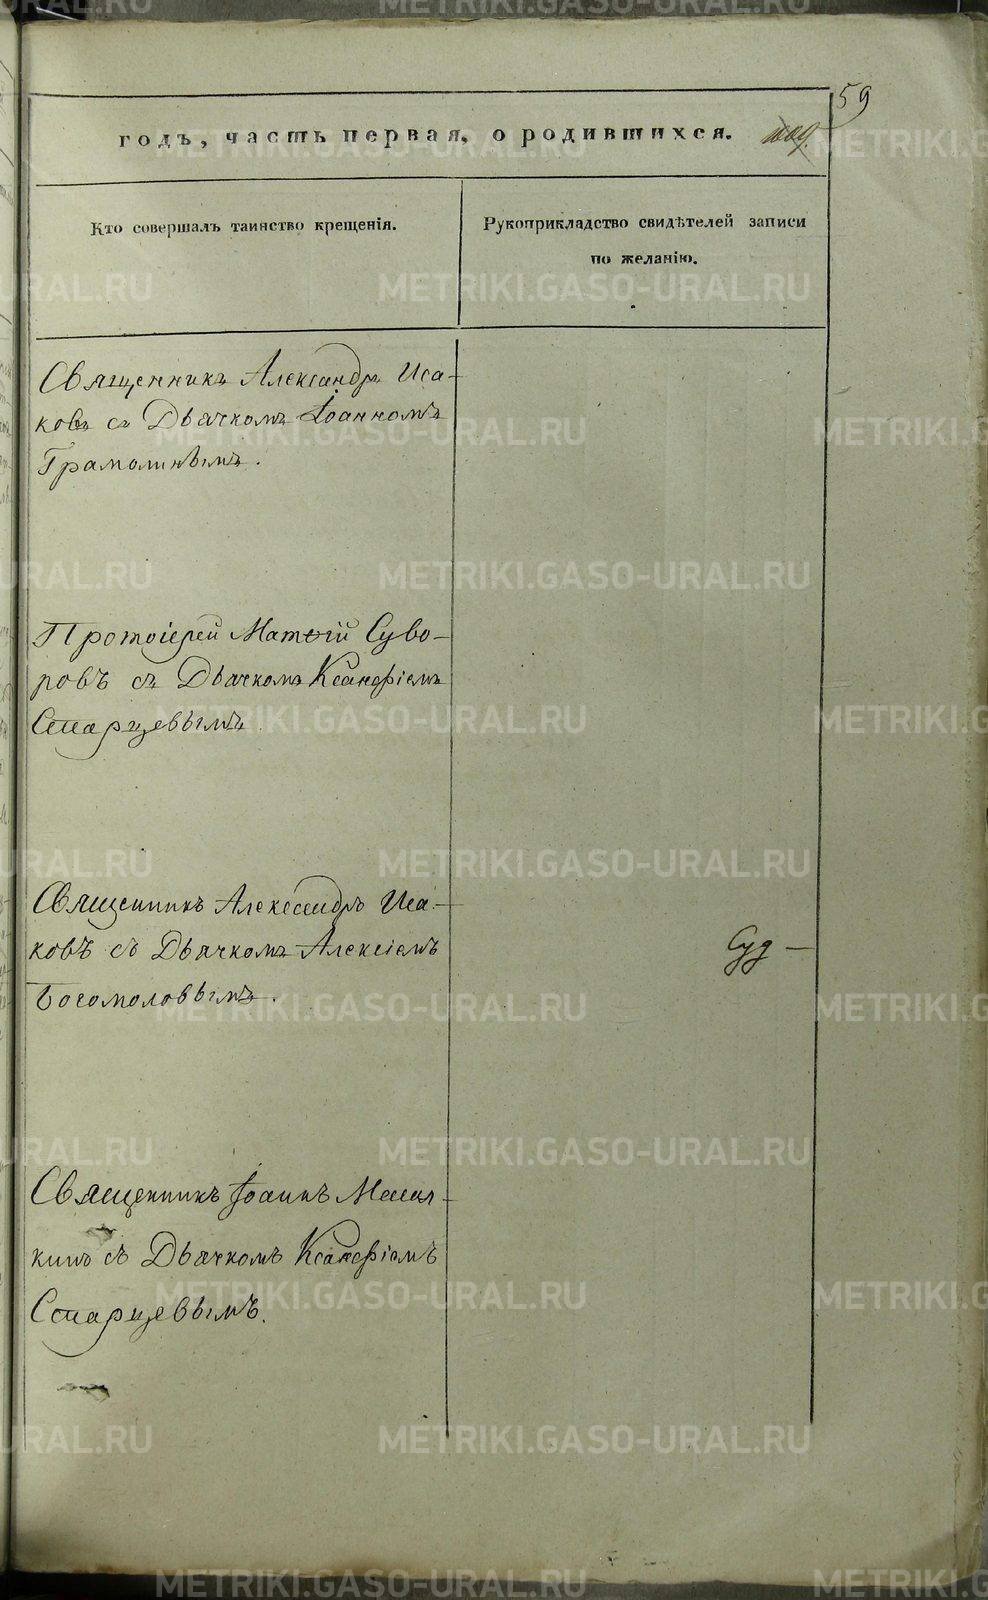 59
годъ, часть первая, о родившихся.
Кто совершалъ таинство крещенія.
Рукоприкладство свидѣтелей записи
по желанію.
Священникъ Александръ Иса-
ковъ съ Дьячкомъ Іоанномъ
Грамолинымъ.
Протоіерей Матѳій Суво-
ровъ съ Дьячкомъ Ксанѳіемъ
Старцевымъ
Священникъ Александръ Иса-
ковъ съ Дьячкомъ Алексіемъ
Богомоловымъ.
Священникъ Іоаннъ
съ Дьячкомъ Ксанѳіемъ
Старцевымъ.
METRIKI.GASO-URAL.RU